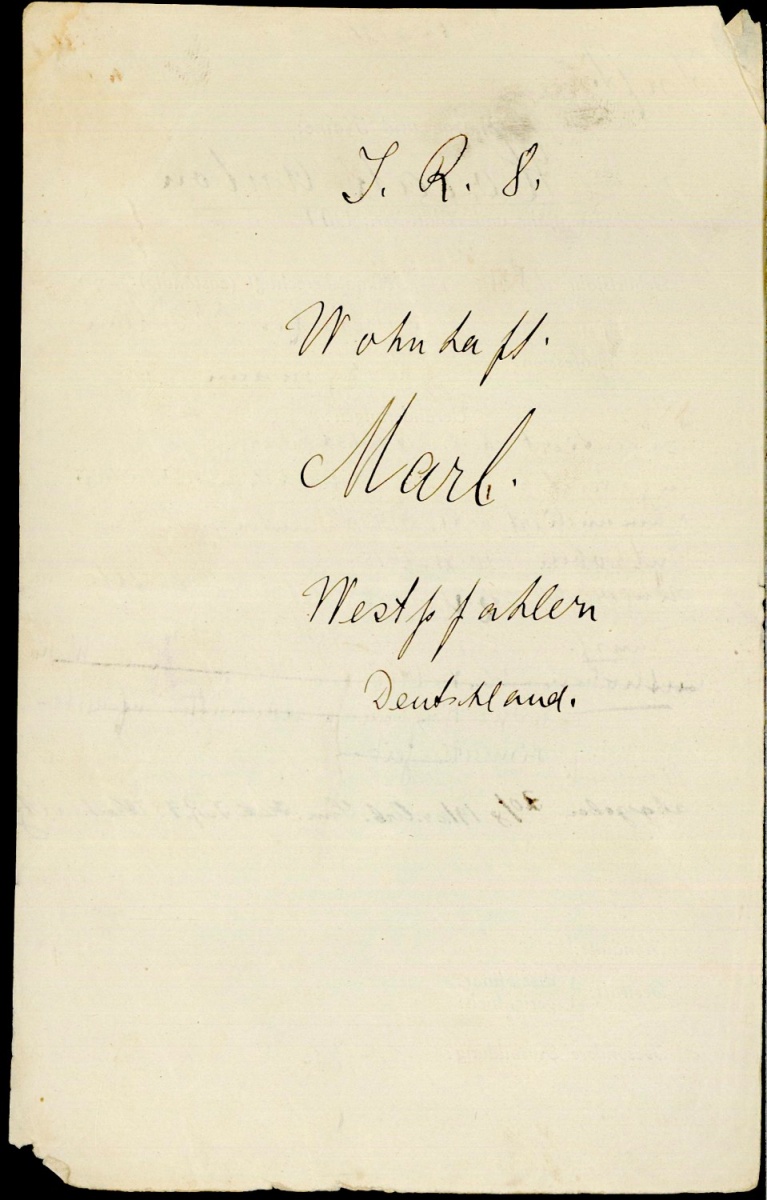 J. R. 8.
Wohnhaft.
Marl.
Westpfahlern
Deutschland.